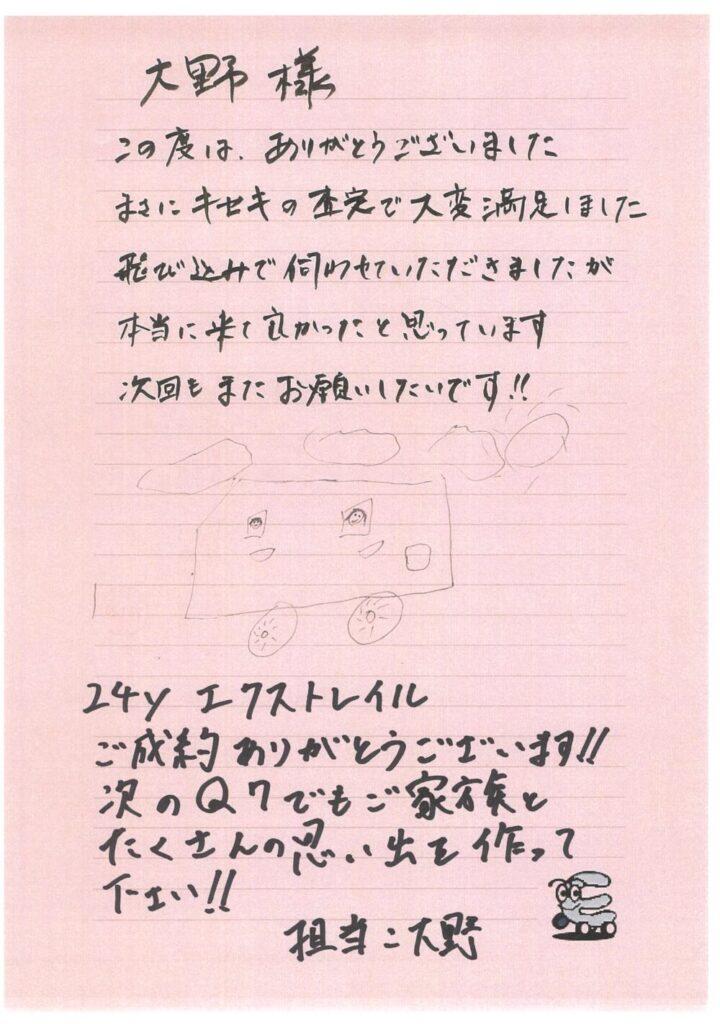 大野 様
この度は、ありがとうございました
まさにキセキの査定で大変満足しました
飛び込みで伺わせていただきましたが
本当に来て良かったと思っています
次回もまたお願いしたいです!!
24y エクストレイル
ご成約ありがとうございます!!
次のQ7でもご家族と
たくさんの思い出を作って
下さい!!
担当:大野